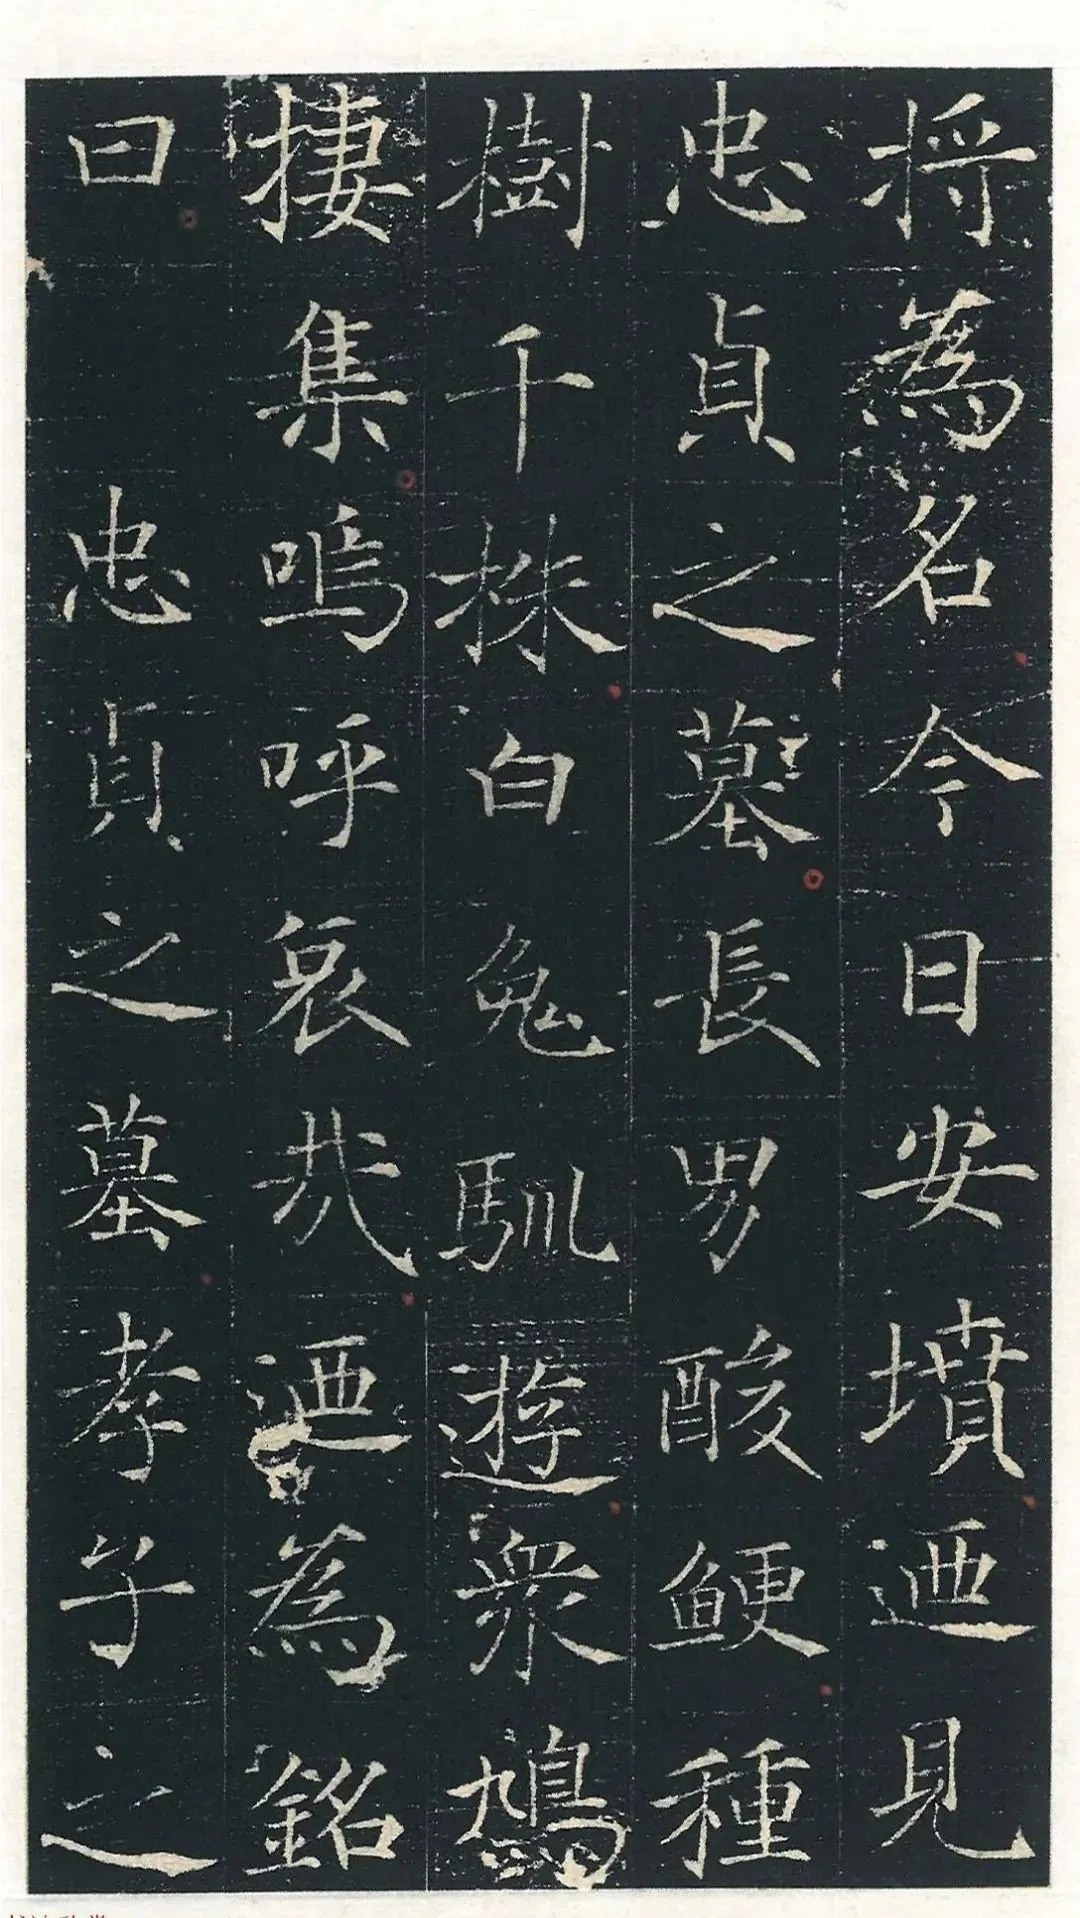 将為名今日安墳迺見
忠貞之墓長男酸鯁種
樹千株白兔馴遊衆鳩
捿集嗚呼哀哉迺為銘
曰忠貞之墓孝子之